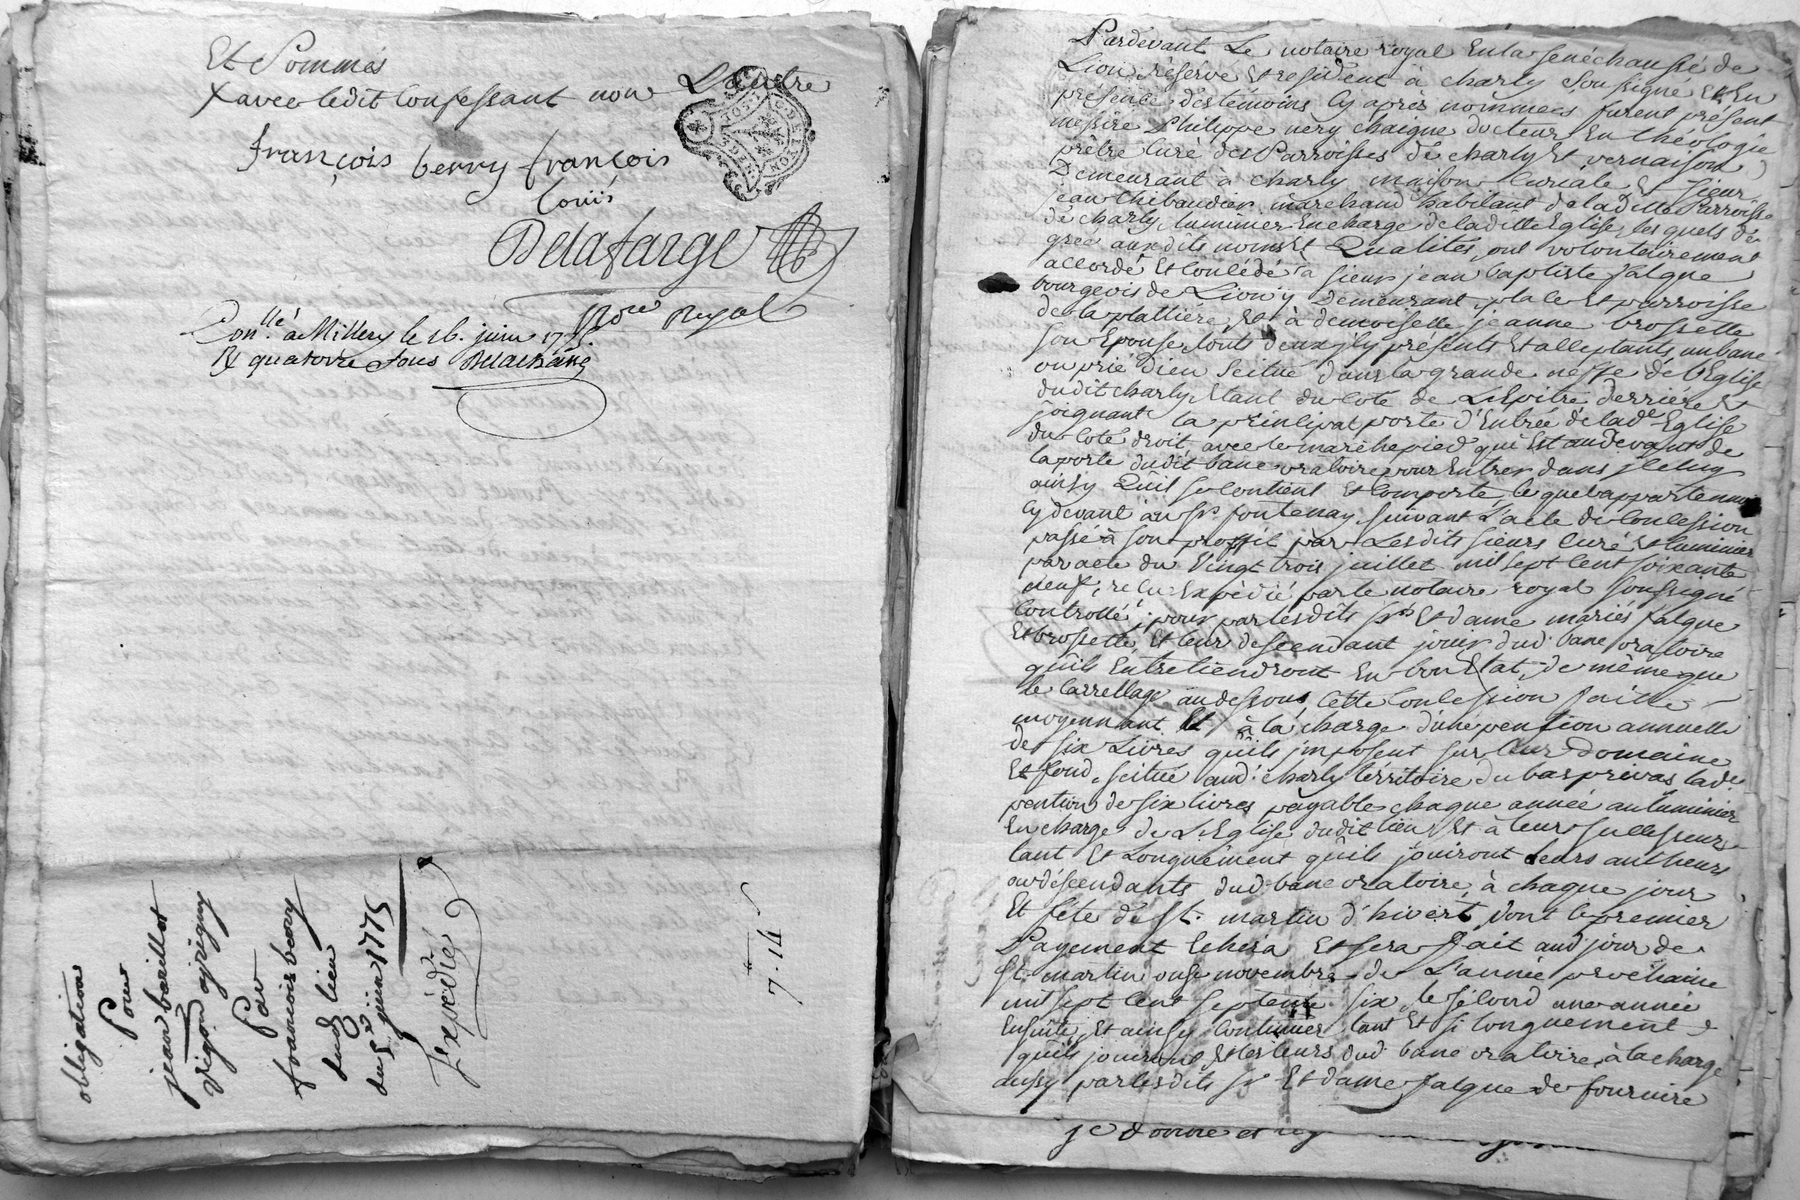 Et Sommés
x avec ledit Confessant non L'autre
G. DE LYON
françois berry françois
Louis
Delafarge
No.re Royal
Con.llé à Millery le 16. juin 1775.
R quatorze sous Delachân
obligation
Pour
jean barillot
vigon ayrigny
Par
francois berry
dud lieu
du 5e juin 1775
Expédié
7. 14 s
Pardevant Le notaire royal En la senéchaussé de
Lion réservé Et résident à charly Soussigné Et En
présence des témoins Cy après nommées furent présent
messire Philippe nery chaigne docteur En théologie
prêtre Curé des Parroisses de charly Et vernaison
Demeurant à charly maison Curiale Et Sieur
jean thibaudier marchand habitant de la ditte Parroisse
de charly, luminier En charge de la ditte Eglise, lesquels de
gree aux dits noms Et Qualités, ont volontairement
accordé Et Concédé à Sieur jean baptiste falque
bourgeois de Lion y Demeurant, place Et parroisse
de la plattiere, Et à demoiselle jeanne brossette
son Epouse, touts deux jcy présents Et acceptants, un banc
ou prié Dieu Scitué dans la grande neffe de l'Eglise
dudit charly, Etant du Coté de L'Epitre derriere Et
joignant la principal porte d'Entrée de lad.e Eglise
du Coté droit avec le marchepied qui Est audevant de
la porte dudit banc oratoire pour Entrer dans jceluy
ainsy Quil se Contient Et Comporte, le quel appartenoit
Cy devant au Sr. fontenay, suivant L'acte de Concession
passé à son proffit par Les dits Sieurs Curé Et luminier
par acte du Vingt trois juillet mil Sept Cent Soixante
neuf, reçu Expédié par le notaire royal soussigné
Controllé; pour par lesdits Sr Et dame mariés falque
Et brossette, Et leur descendant jouir dud. banc oratoire
qu'ils Entretiendront En bon Etat, de même que
le Carrellage audessous, Cette Concession faitte
moyennant Et à la charge d'une pention annuelle
de Six Livres qu'ils jmposent sur leur Domaine
Et fond, scitué aud. charly térritoire du bas privas, lad.e
pention de six livres payable chaque année au luminier
En charge de L'Eglise dudit lieu Et à leurs successeurs
tant Et Longuement qu'ils jouiront leurs autheurs
ou déscendants dud. banc oratoire, à chaque jour
Et fête de St. martin d'hivert, Dont le premier
Payement Echera Et sera fait aud. jour de
St. martin onse novembre de L'année prochaine
mil sept Cent septente six, le sécond une année
Ensuite, Et ainsy Continuer tant Et si longuement
qu'ils jouiront Et les leurs dud. banc oratoire, à la charge
aussy par les dits Sr Et dame falque de fournire
je donne et